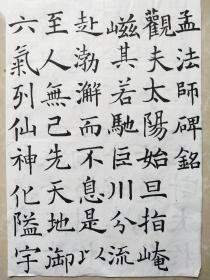 孟法師碑銘
觀夫太陽始旦指崦
嵫其若馳巨川分流
赴渤澥而不息是以
至人無己先天地御
六氣列仙神化隘宇